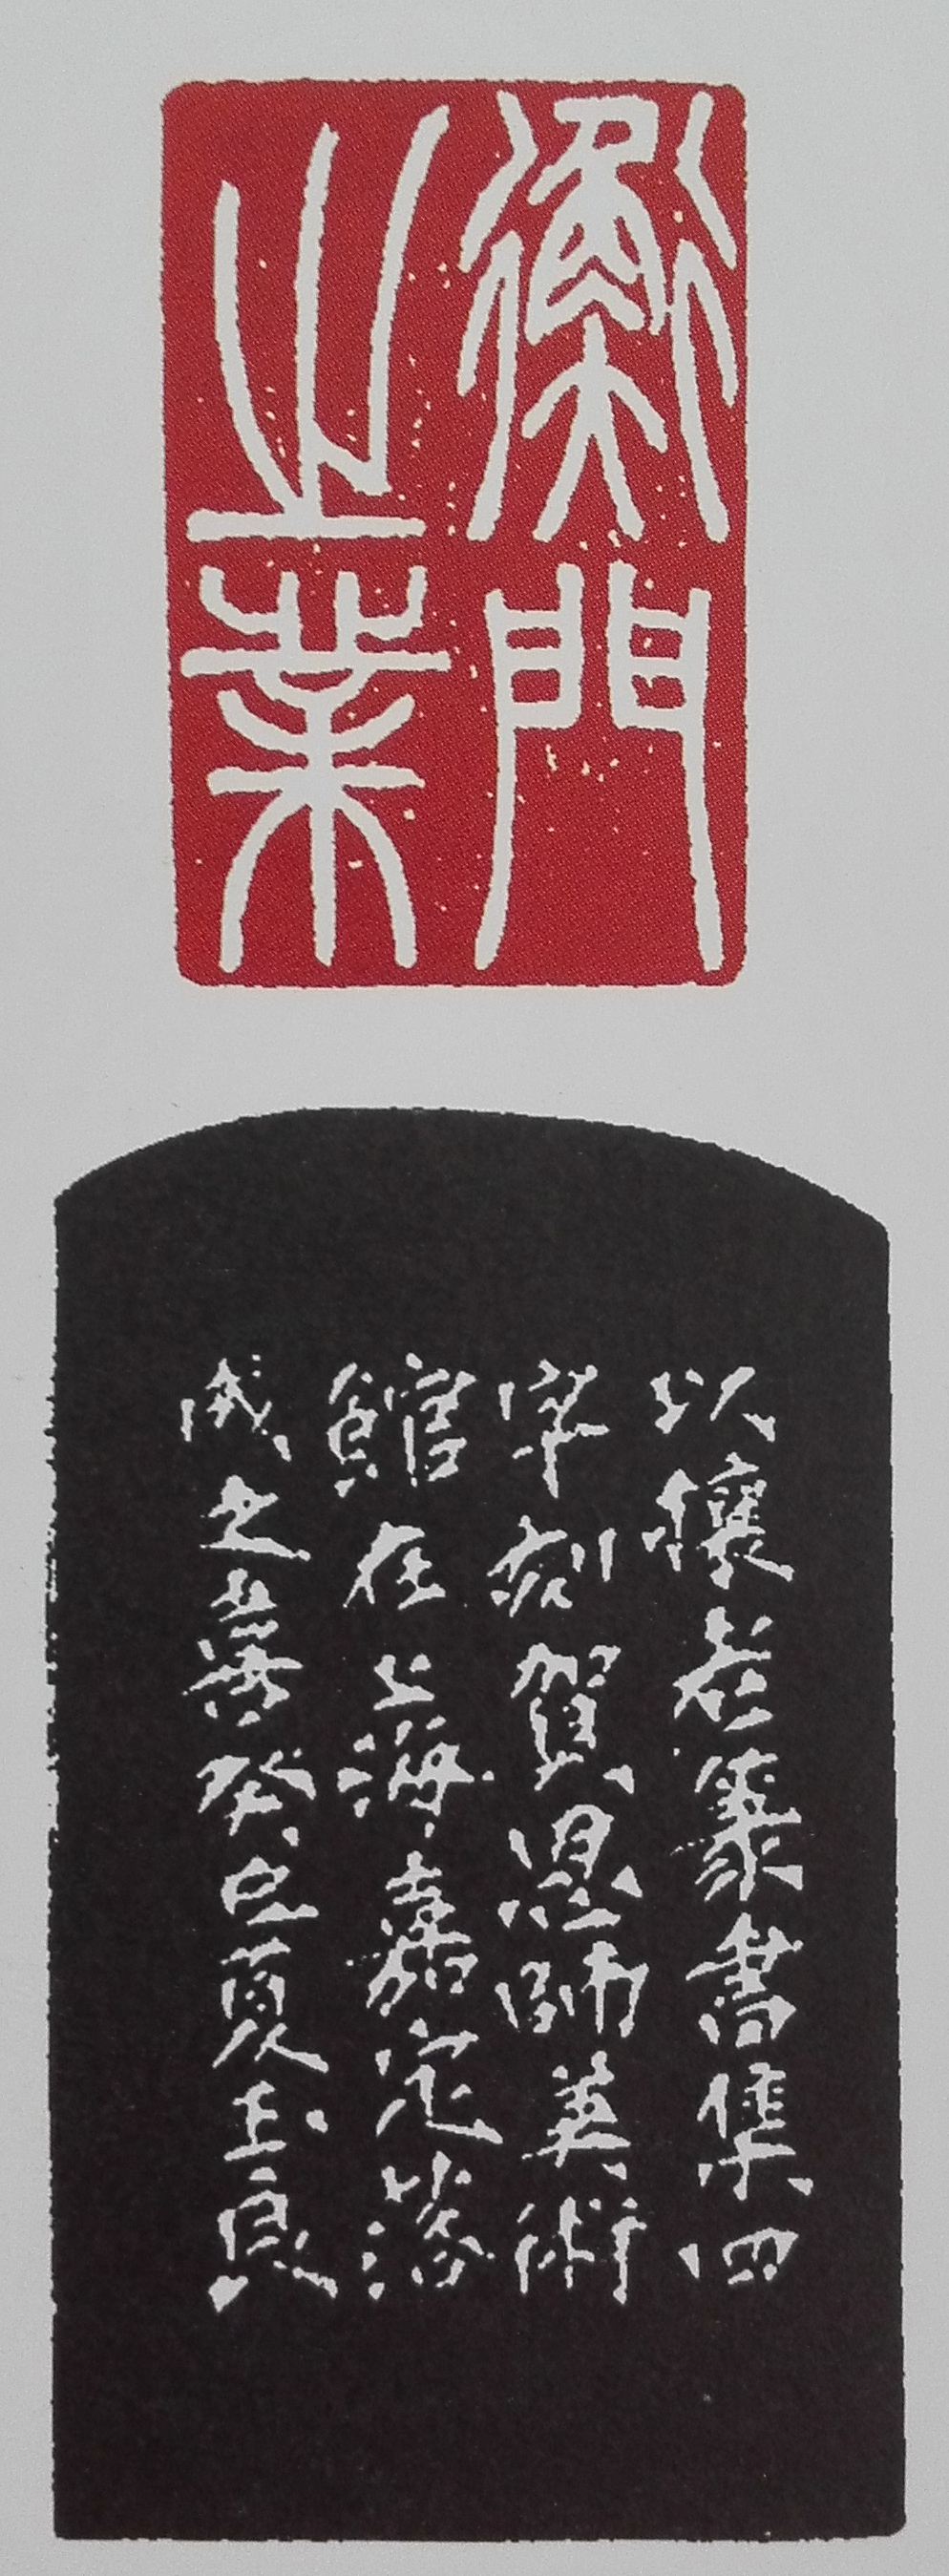 衡門
之業
以懷老篆書集四
字刻賀恩師美術
館在上海嘉定落
成之喜癸巳夏玉良